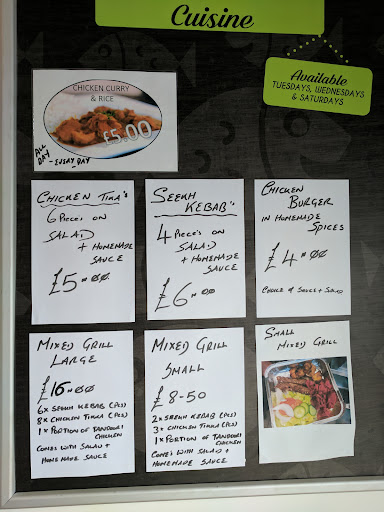 Cuisine
Available
TUESDAYS, WEDNESDAYS
& SATURDAYS
CHICKEN CURRY
& RICE
£5.00
ALL
DAY
- EVERY DAY
CHICKEN TIKA's
6 PIECE's ON
SALAD
+ HOMEMADE
SAUCE
£5=00
SEEKH
KEBAB's
4 PIECE's ON
SALAD
+ HOMEMADE
SAUCE
£6=00
CHICKEN
BURGER
IN HOMEMADE
SPICES
£4=00
CHOICE OF SAUCE + SALAD
MIXED GRILL
LARGE
£16=00
6x SEEKH KEBAB (PCs)
8x CHICKEN TIKKA (PCs)
1x PORTION OF TANDOORI
CHICKEN
COMES WITH SALAD +
HOMEMADE SAUCE
MIXED GRILL
SMALL
£8-50
2x SEEKH KEBAB (PCs)
3x CHICKEN TIKKA (PCs)
1x PORTION OF TANDOORI
CHICKEN
COMES WITH SALAD +
HOMEMADE SAUCE
SMALL
MIXED GRILL